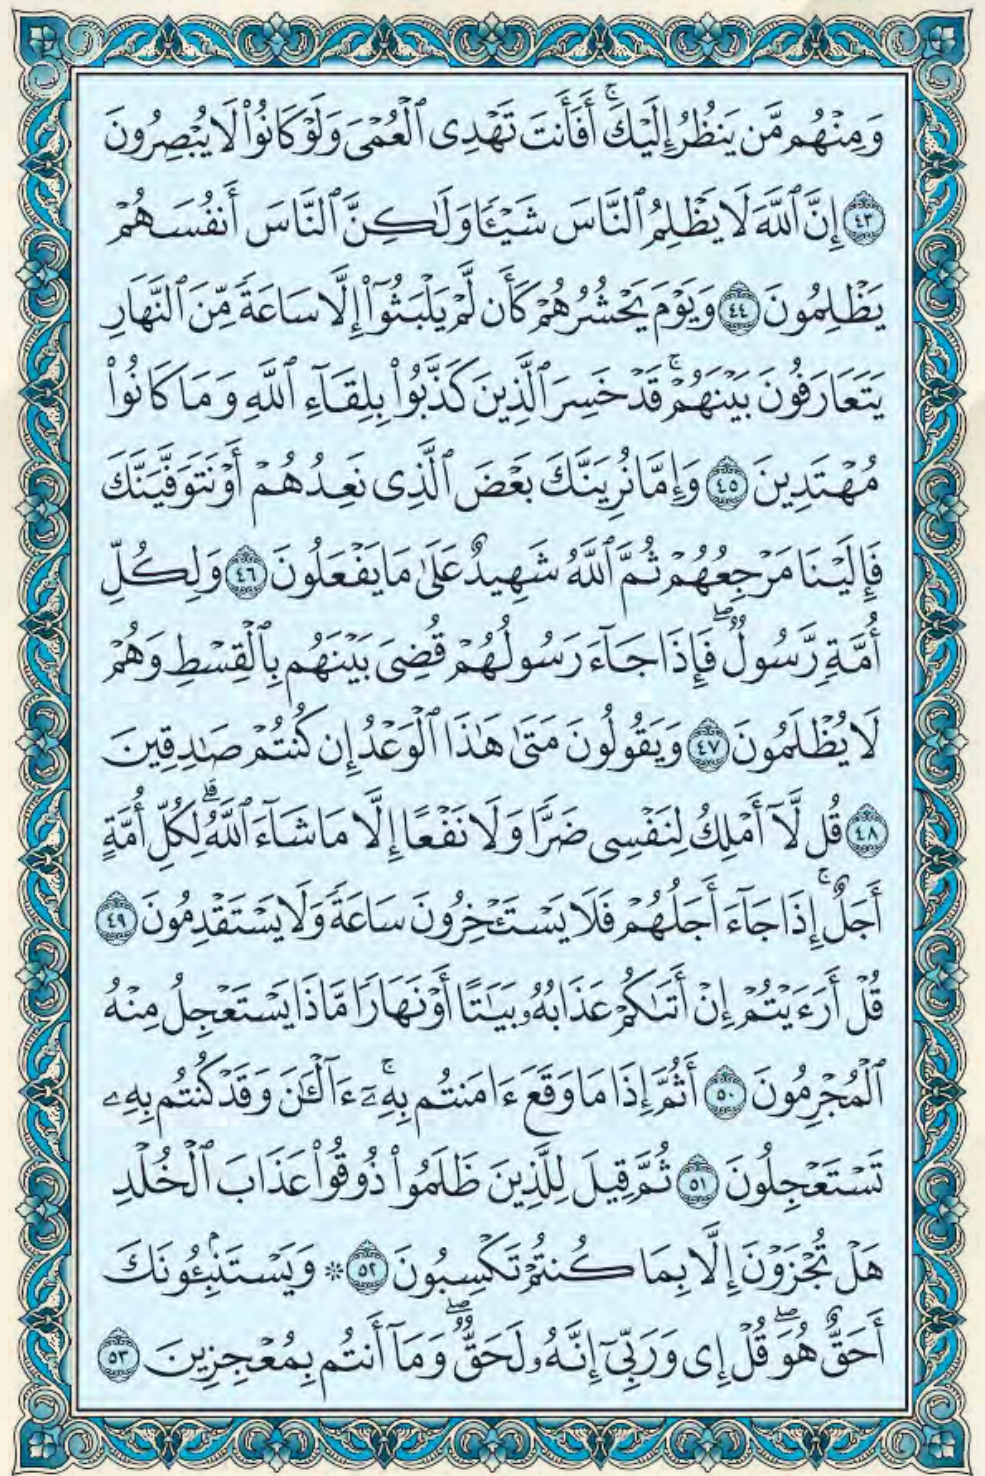 وَمِنْهُم مَّن يَنظُرُ إِلَيْكَ ۚ أَفَأَنتَ تَهْدِى ٱلْعُمْىَ وَلَوْ كَانُوا۟ لَا يُبْصِرُونَ
٤٣ إِنَّ ٱللَّهَ لَا يَظْلِمُ ٱلنَّاسَ شَيْـًٔا وَلَـٰكِنَّ ٱلنَّاسَ أَنفُسَهُمْ
يَظْلِمُونَ ٤٤ وَيَوْمَ يَحْشُرُهُمْ كَأَن لَّمْ يَلْبَثُوٓا۟ إِلَّا سَاعَةً مِّنَ ٱلنَّهَارِ
يَتَعَارَفُونَ بَيْنَهُمْ ۚ قَدْ خَسِرَ ٱلَّذِينَ كَذَّبُوا۟ بِلِقَآءِ ٱللَّهِ وَمَا كَانُوا۟
مُهْتَدِينَ ٤٥ وَإِمَّا نُرِيَنَّكَ بَعْضَ ٱلَّذِى نَعِدُهُمْ أَوْ نَتَوَفَّيَنَّكَ
فَإِلَيْنَا مَرْجِعُهُمْ ثُمَّ ٱللَّهُ شَهِيدٌ عَلَىٰ مَا يَفْعَلُونَ ٤٦ وَلِكُلِّ
أُمَّةٍ رَّسُولٌ ۖ فَإِذَا جَآءَ رَسُولُهُمْ قُضِىَ بَيْنَهُم بِٱلْقِسْطِ وَهُمْ
لَا يُظْلَمُونَ ٤٧ وَيَقُولُونَ مَتَىٰ هَـٰذَا ٱلْوَعْدُ إِن كُنتُمْ صَـٰدِقِينَ
٤٨ قُل لَّآ أَمْلِكُ لِنَفْسِى ضَرًّا وَلَا نَفْعًا إِلَّا مَا شَآءَ ٱللَّهُ ۗ لِكُلِّ أُمَّةٍ
أَجَلٌ ۚ إِذَا جَآءَ أَجَلُهُمْ فَلَا يَسْتَـْٔخِرُونَ سَاعَةً وَلَا يَسْتَقْدِمُونَ ٤٩
قُلْ أَرَءَيْتُمْ إِنْ أَتَىٰكُمْ عَذَابُهُۥ بَيَـٰتًا أَوْ نَهَارًا مَّاذَا يَسْتَعْجِلُ مِنْهُ
ٱلْمُجْرِمُونَ ٥٠ أَثُمَّ إِذَا مَا وَقَعَ ءَامَنتُم بِهِۦٓ ۚ ءَآلْـَٔـٰنَ وَقَدْ كُنتُم بِهِۦ
تَسْتَعْجِلُونَ ٥١ ثُمَّ قِيلَ لِلَّذِينَ ظَلَمُوا۟ ذُوقُوا۟ عَذَابَ ٱلْخُلْدِ
هَلْ تُجْزَوْنَ إِلَّا بِمَا كُنتُمْ تَكْسِبُونَ ٥٢ * وَيَسْتَنۢبِـُٔونَكَ
أَحَقٌّ هُوَ ۖ قُلْ إِى وَرَبِّىٓ إِنَّهُۥ لَحَقٌّ ۖ وَمَآ أَنتُم بِمُعْجِزِينَ ٥٣